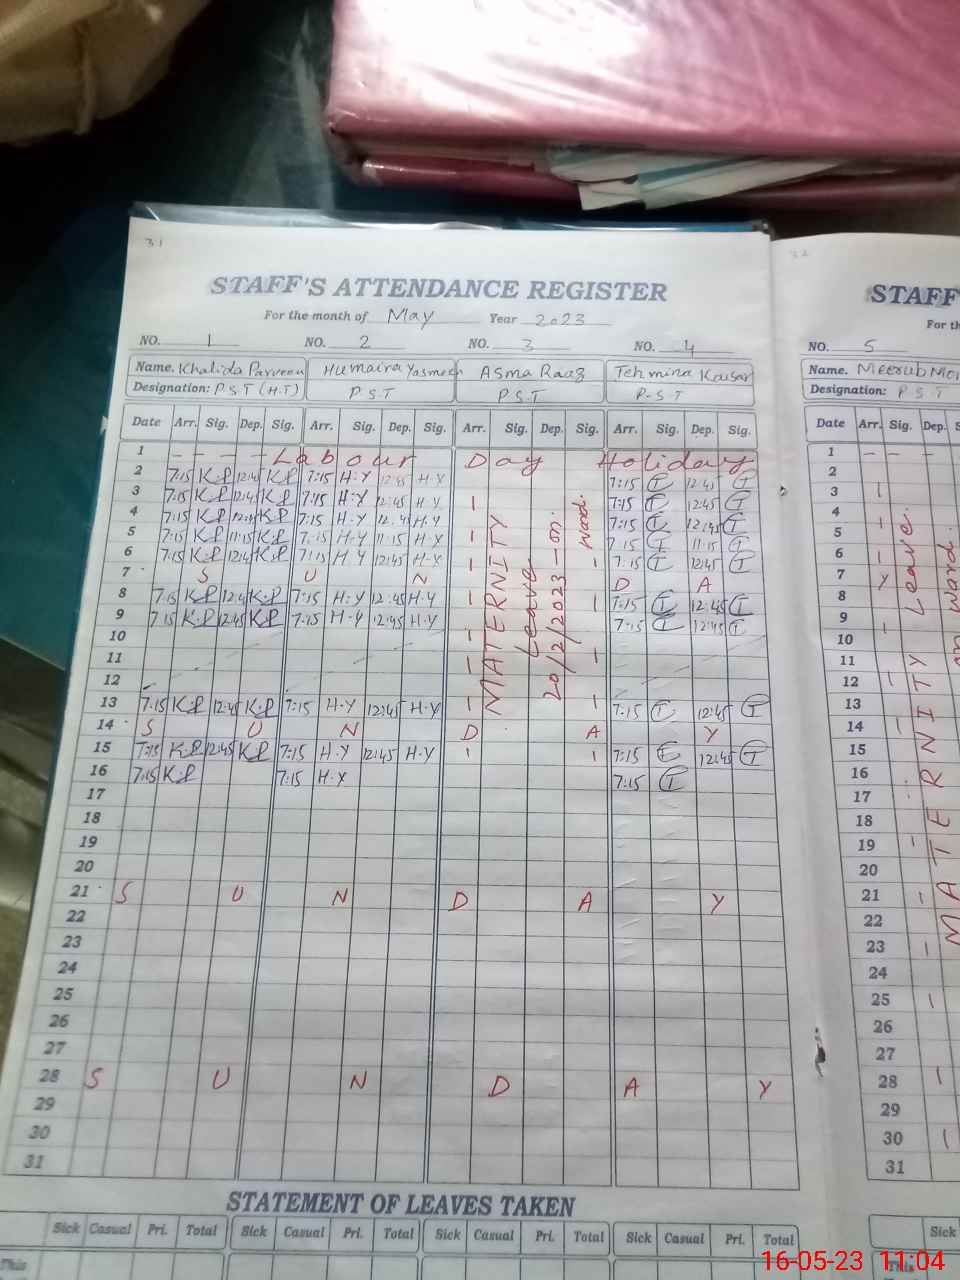 31
STAFF'S ATTENDANCE REGISTER
For the month of May Year 2023
NO. 1 NO. 2 NO. 3 NO. 4
Name. Khalida Parveen Humaira Yasmeen Asma Raaz Tehmina Kausar
Designation: P.S.T (H.T) P.S.T P.S.T P.S.T
Date Arr. Sig. Dep. Sig. Arr. Sig. Dep. Sig. Arr. Sig. Dep. Sig. Arr. Sig. Dep. Sig.
1 - - - - Labour Day Holiday
2 7:15 K.P 12:45 K.P 7:15 H-Y 12:45 H-Y 7:15 T 12:45 T
3 7:15 K.P 12:45 K.P 7:15 H-Y 12:45 H-Y 7:15 T 12:45 T
4 7:15 K.P 12:45 K.P 7:15 H-Y 12:45 H-Y 7:15 T 12:45 T
5 7:15 K.P 11:15 K.P 7:15 H-Y 11:15 H-Y 7:15 T 11:15 T
6 7:15 K.P 12:45 K.P 7:15 H-Y 12:45 H-Y 7:15 T 12:45 T
7 S U N D A
8 7:15 K.P 12:45 K.P 7:15 H-Y 12:45 H-Y 7:15 T 12:45 T
9 7:15 K.P 12:45 K.P 7:15 H-Y 12:45 H-Y 7:15 T 12:45 T
10
11
12
13 7:15 K.P 12:45 K.P 7:15 H-Y 12:45 H-Y 7:15 T 12:45 T
14 S U N D A Y
15 7:15 K.P 12:45 K.P 7:15 H-Y 12:45 H-Y 7:15 T 12:45 T
16 7:15 K.P 7:15 H-Y 7:15 T
17
18
19
20
21 S U N D A Y
22
23
24
25
26
27
28 S U N D A Y
29
30
31
MATERNITY
Leave
20/2/2023 - on
ward.
STATEMENT OF LEAVES TAKEN
Sick Casual Pri. Total Sick Casual Pri. Total Sick Casual Pri. Total Sick Casual Pri. Total
This
32
STAFF
For th
NO. 5
Name. Meerub
Designation: P S T
Date Arr. Sig. Dep. S
1 - -
2
3
4
5
6
7
8
9
10
11
12
13
14
15
16
17
18
19
20
21
22
23
24
25
26
27
28
29
30
31
MATERNITY
Leave.
on ward.
Sick
This
16-05-23 11:04